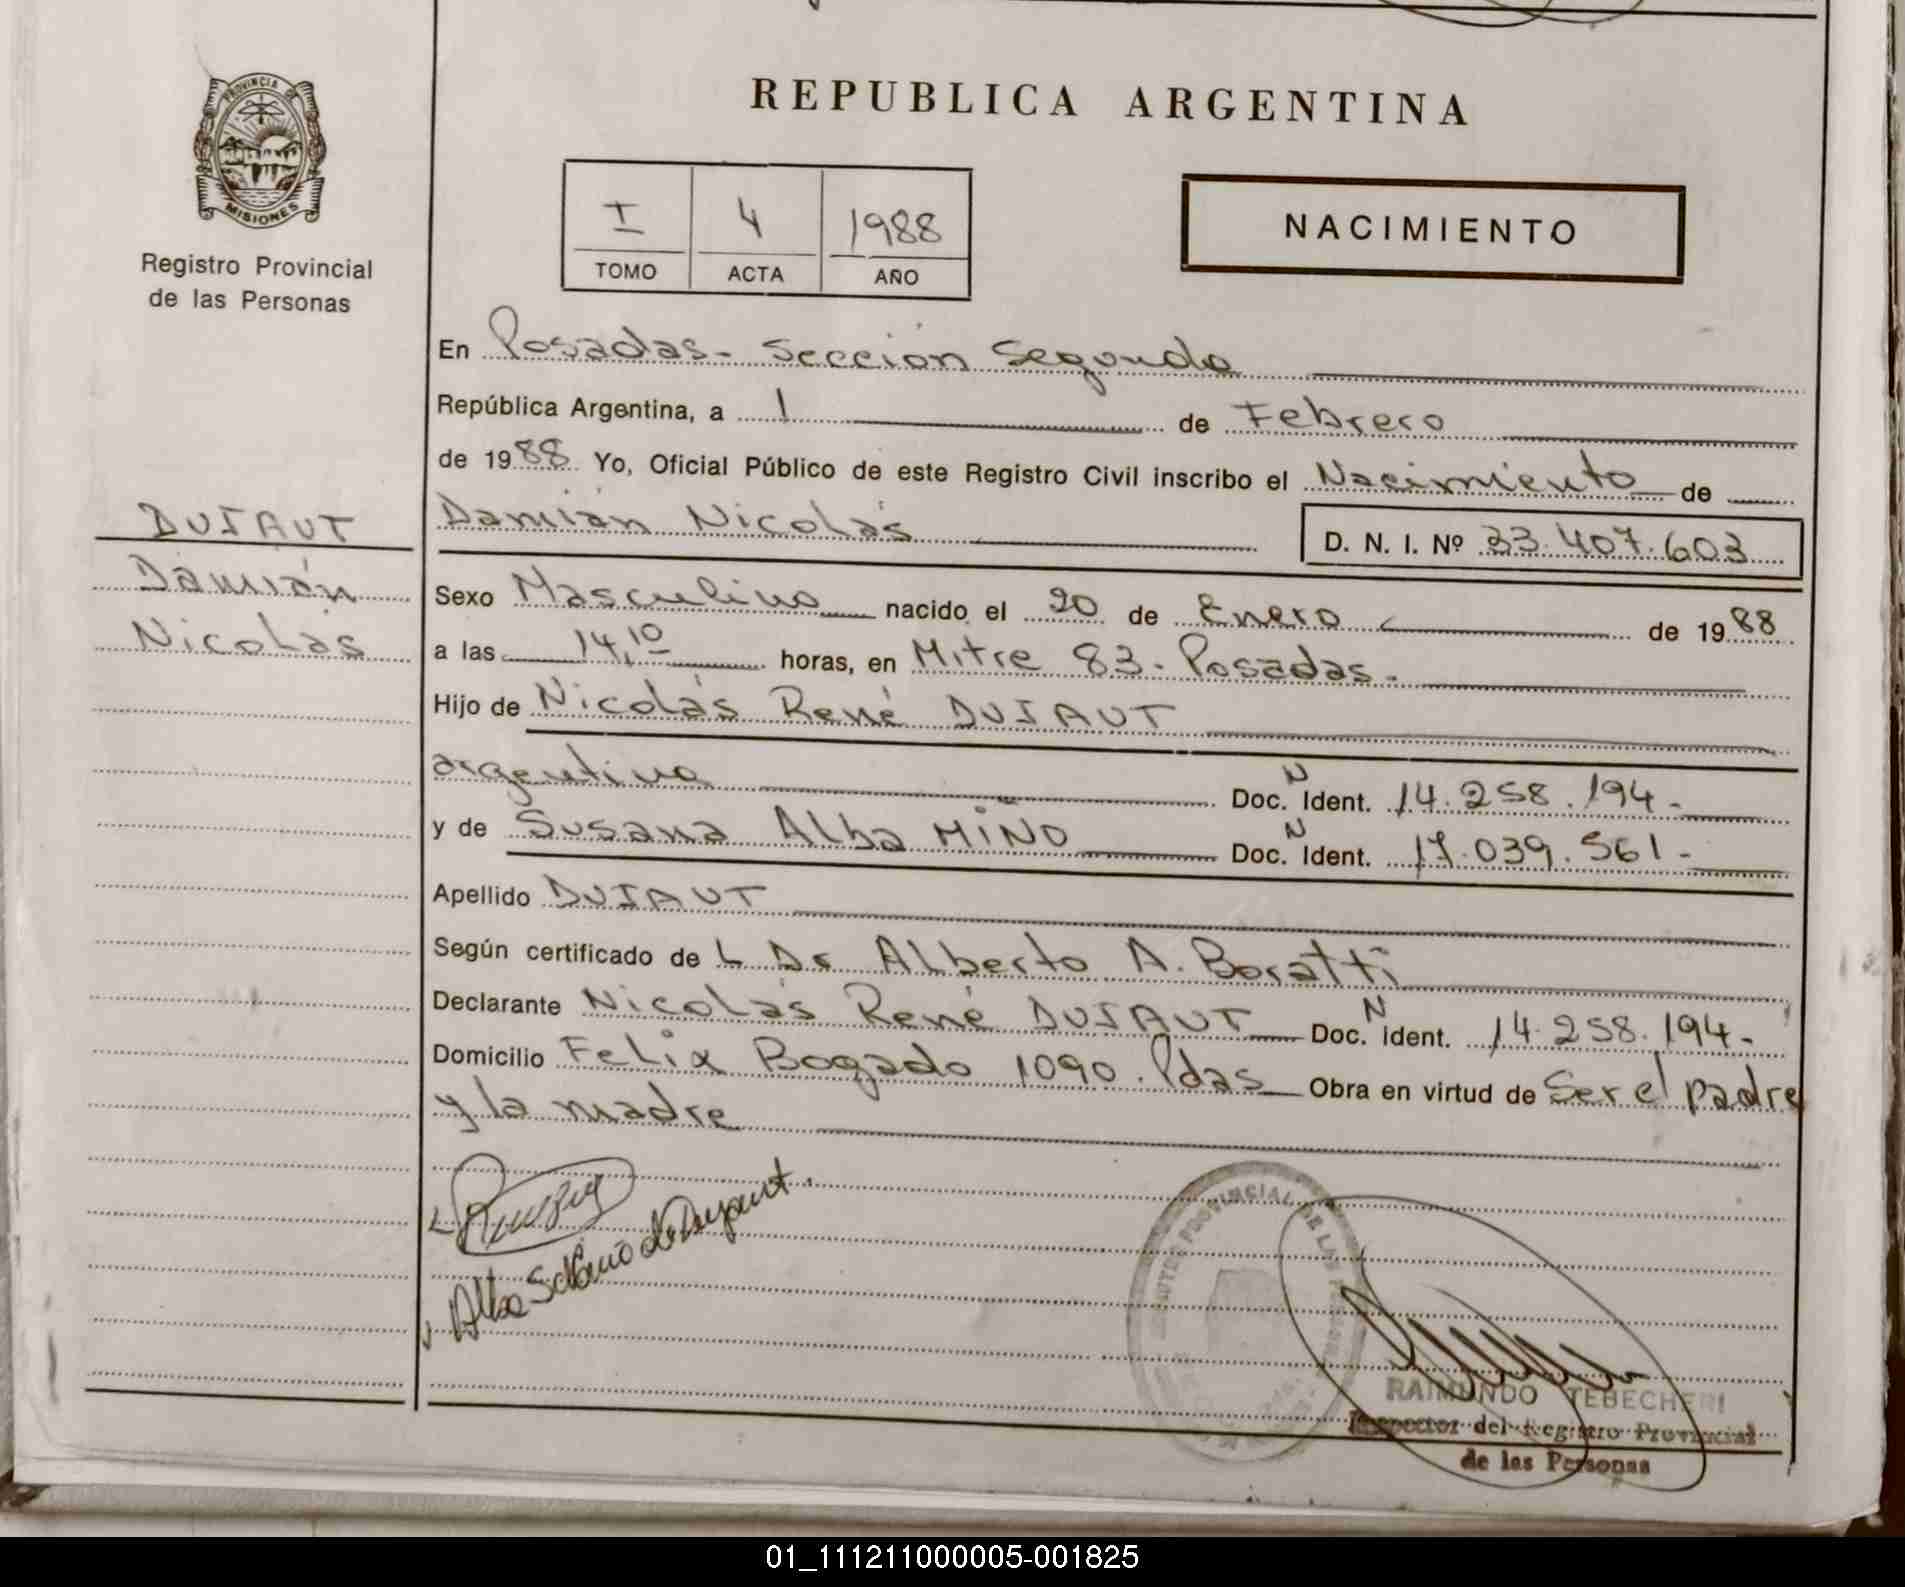 REPUBLICA ARGENTINA
PROVINCIA DE
MISIONES
Registro Provincial
de las Personas
I 4 1988
TOMO ACTA AÑO
NACIMIENTO
En Posadas - Sección Segunda
República Argentina, a 1 de Febrero
de 1988 Yo, Oficial Público de este Registro Civil inscribo el Nacimiento de
DUJAUT
Damián
Nicolás
Damián Nicolás D. N. I. Nº 33.407.603
Sexo Masculino nacido el 20 de Enero de 1988
a las 14,10 horas, en Mitre 83 - Posadas -
Hijo de Nicolás René DUJAUT
argentina Doc. N Ident. 14.258.194 -
y de Susana Alba MIÑO Doc. N Ident. 17.039.561 -
Apellido DUJAUT
Según certificado de L Dr Alberto A. Boratti
Declarante Nicolás René DUJAUT Doc. N Ident. 14.258.194 -
Domicilio Felix Bogado 1090 . Pdas Obra en virtud de Ser el padre
y la madre
Alba de Dujaut.
PROVINCIAL DE LAS
RAIMUNDO TEBECHERI
Inspector del Registro Provincial
de las Personas
01_111211000005-001825